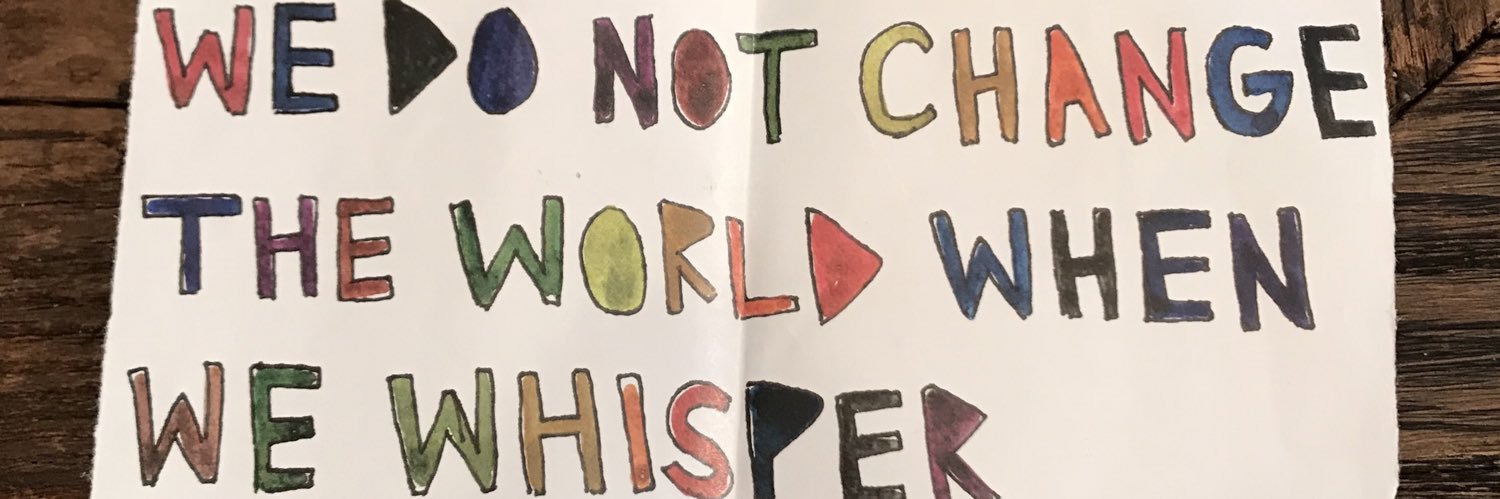 WE DO NOT CHANGE
THE WORLD WHEN
WE WHISPER